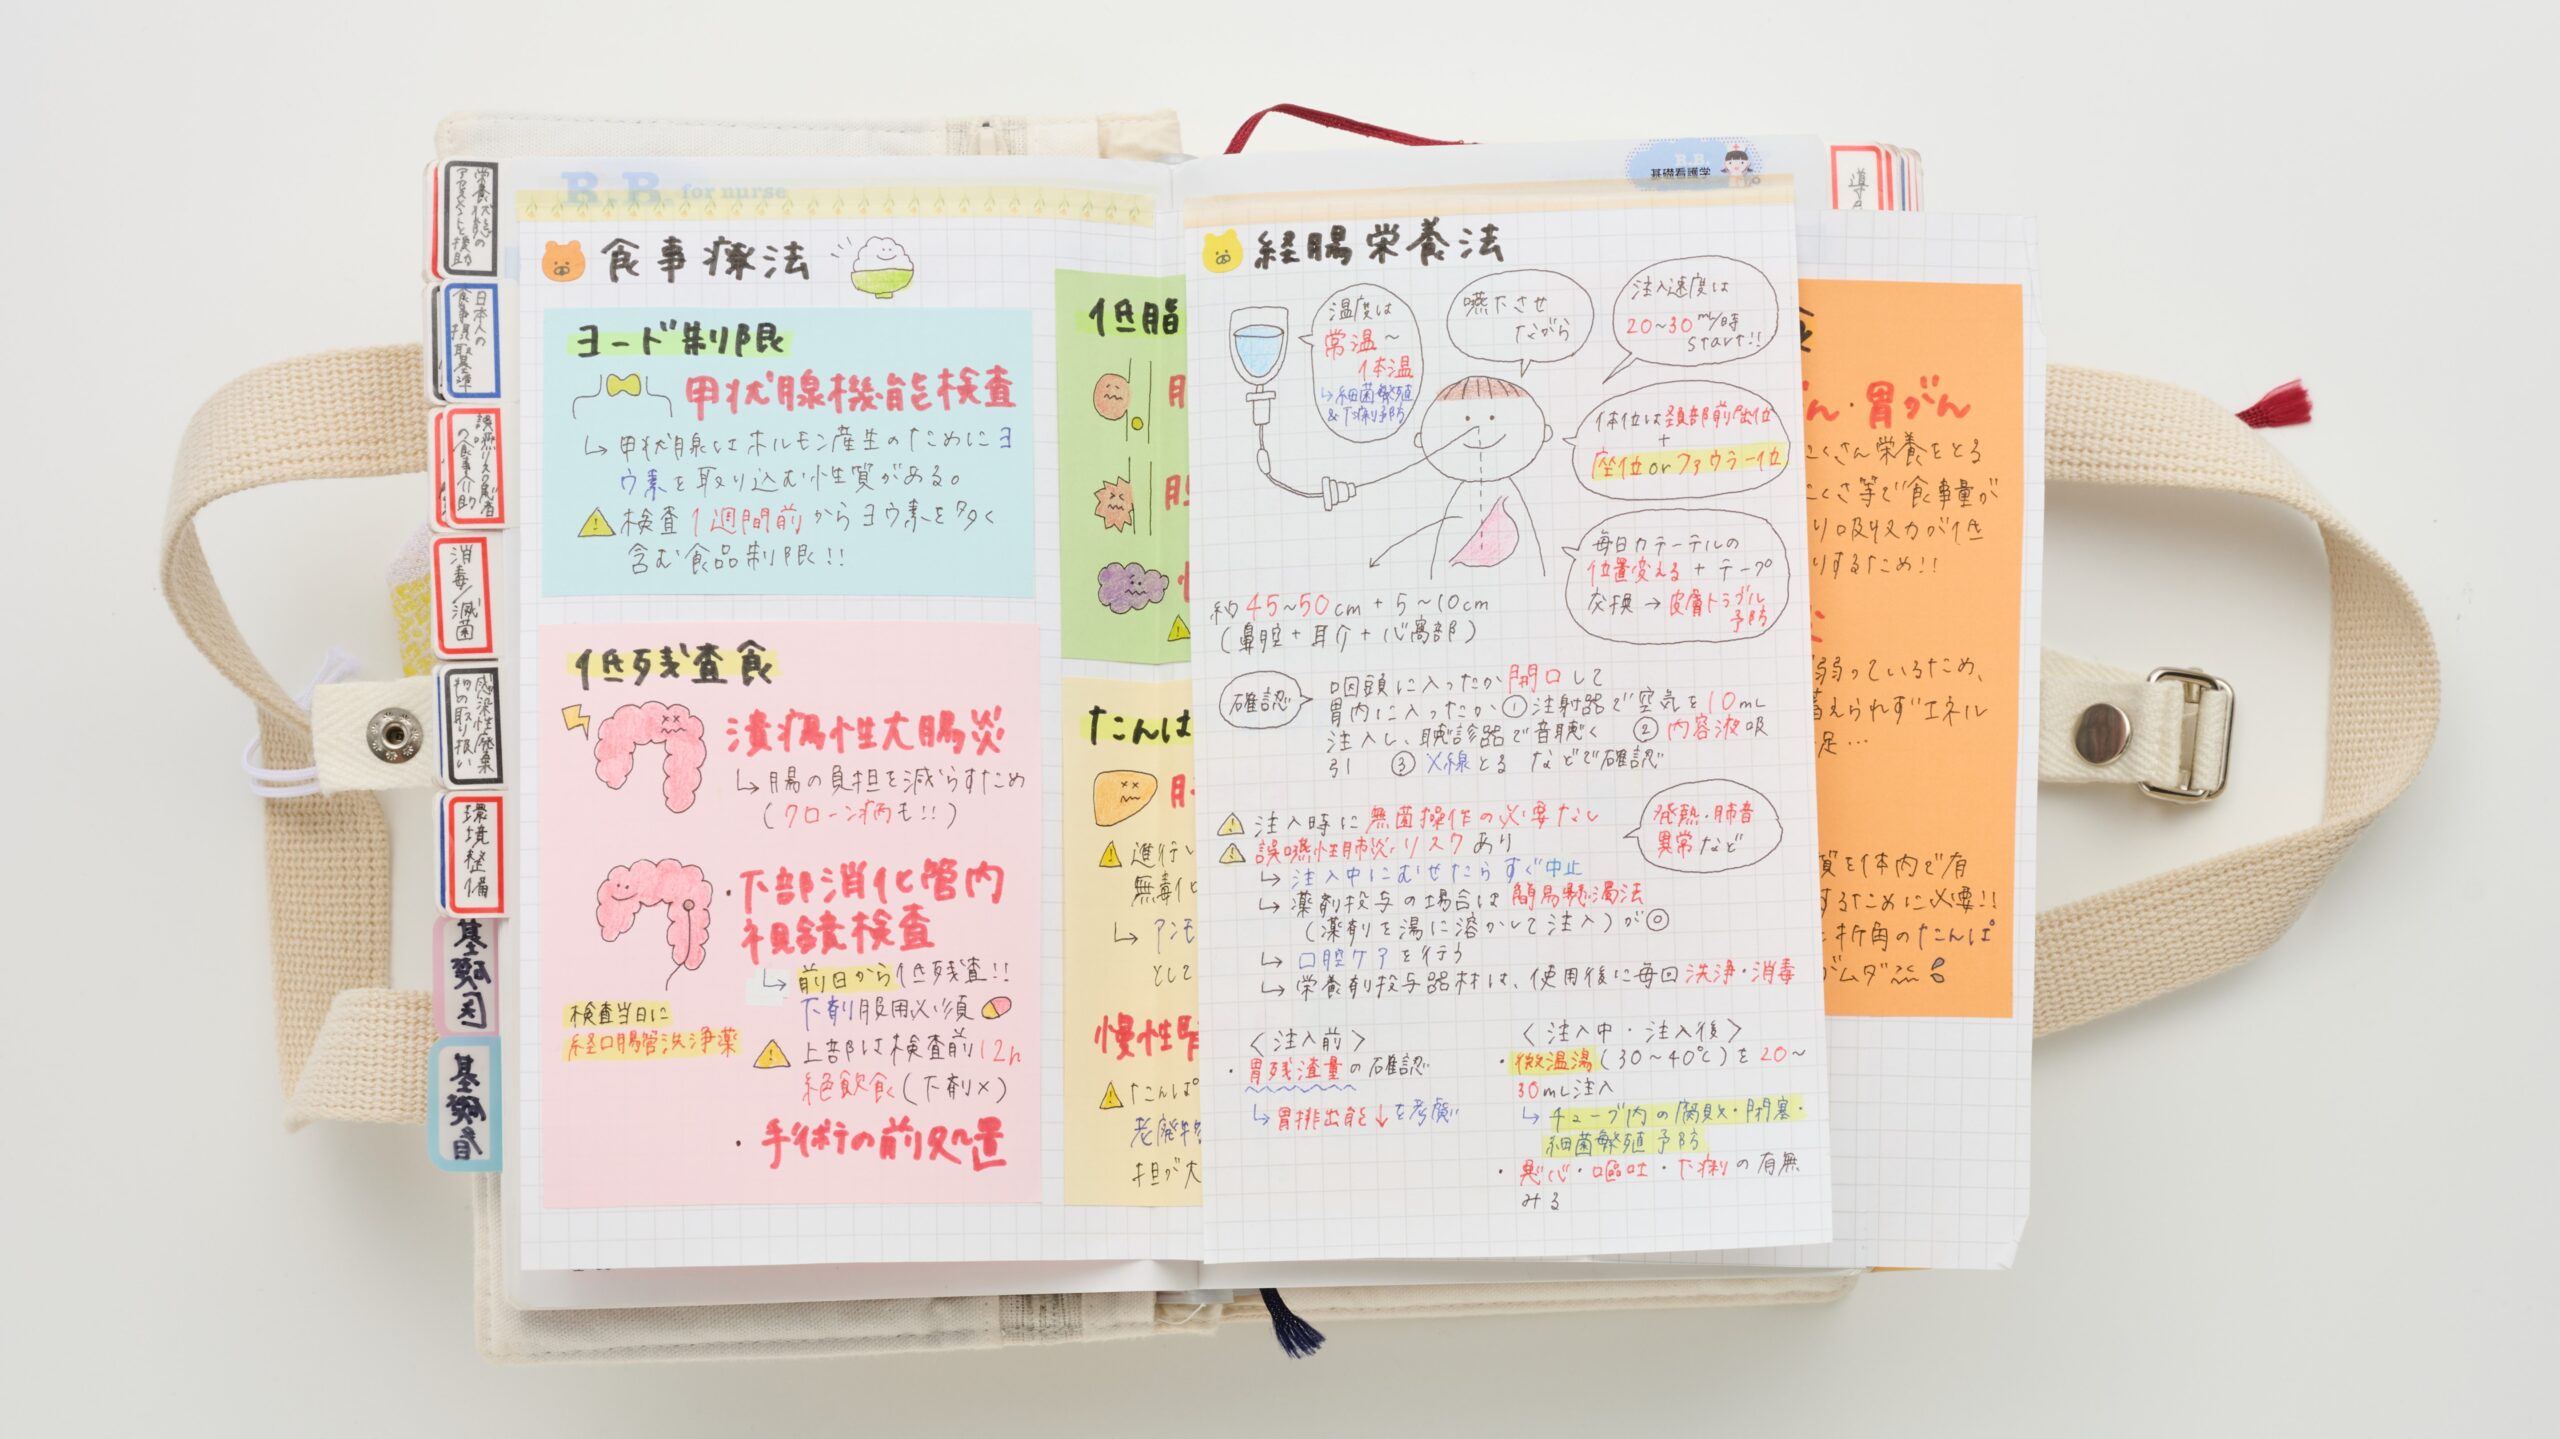 栄養状態の
アセスメントと援助
日本人の
食事摂取基準
誤嚥リスクの患者
の食事介助
消毒/滅菌
感染性廃棄
物の取り扱い
環境整備
基礎
基礎看
R.B. for nurse
食事療法
ヨード制限
甲状腺機能検査
↳ 甲状腺はホルモン産生のためにヨ
ウ素を取り込む性質がある。
検査1週間前からヨウ素を多く
含む食品制限!!
低残渣食
潰瘍性大腸炎
↳ 腸の負担を減らすため
(クローン病も!!)
・下部消化管内
視鏡検査
↳ 前日から低残渣!!
下剤服用必須
検査当日に
経口腸管洗浄薬
上部は検査前12h
絶飲食(下剤×)
・手術の前処置
低脂
たんぱ
進行し
無毒化
↳ アンモ
として
慢性腎
たんぱ
老廃物
担が大
R.B.
基礎看護学
経腸栄養法
温度は
常温〜
体温
↳細菌繁殖
&下痢予防
嚥下させ
ながら
注入速度は
20〜30ml/時
start!!
体位は頚部前屈位
+
座位orファウラー位
毎日カテーテルの
位置変える + テープ
交換 → 皮膚トラブル
予防
約45〜50cm + 5〜10cm
(鼻腔+耳介+心窩部)
確認
咽頭に入ったか開口して
胃内に入ったか①注射器で空気を10mL
注入し、聴診器で音聴く ②内容液吸
引 ③X線とる などで確認
注入時に無菌操作の必要なし
誤嚥性肺炎リスクあり
発熱・肺音
異常など
↳ 注入中にむせたらすぐ中止
↳ 薬剤投与の場合は簡易懸濁法
(薬剤を湯に溶かして注入)が◎
↳ 口腔ケアを行う
↳ 栄養剤投与器材は、使用後に毎回洗浄・消毒
<注入前>
・胃残渣量の確認
↳ 胃排出能↓を考慮
<注入中・注入後>
・微温湯(30〜40℃)を20〜
30mL注入
↳ チューブ内の腐敗・閉塞・
細菌繁殖予防
・悪心・嘔吐・下痢の有無
みる
導
ん・胃がん
栄養をとる
くさ等で食事量が
り吸収力が低
りするため!!
弱っているため、
えられずエネル
足…
質を体内で有
するために必要!!
折角のたんぱ
がムダ